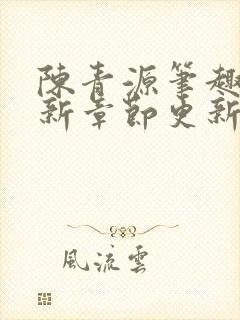 陳青源筆趣
新章節更新
風流雲